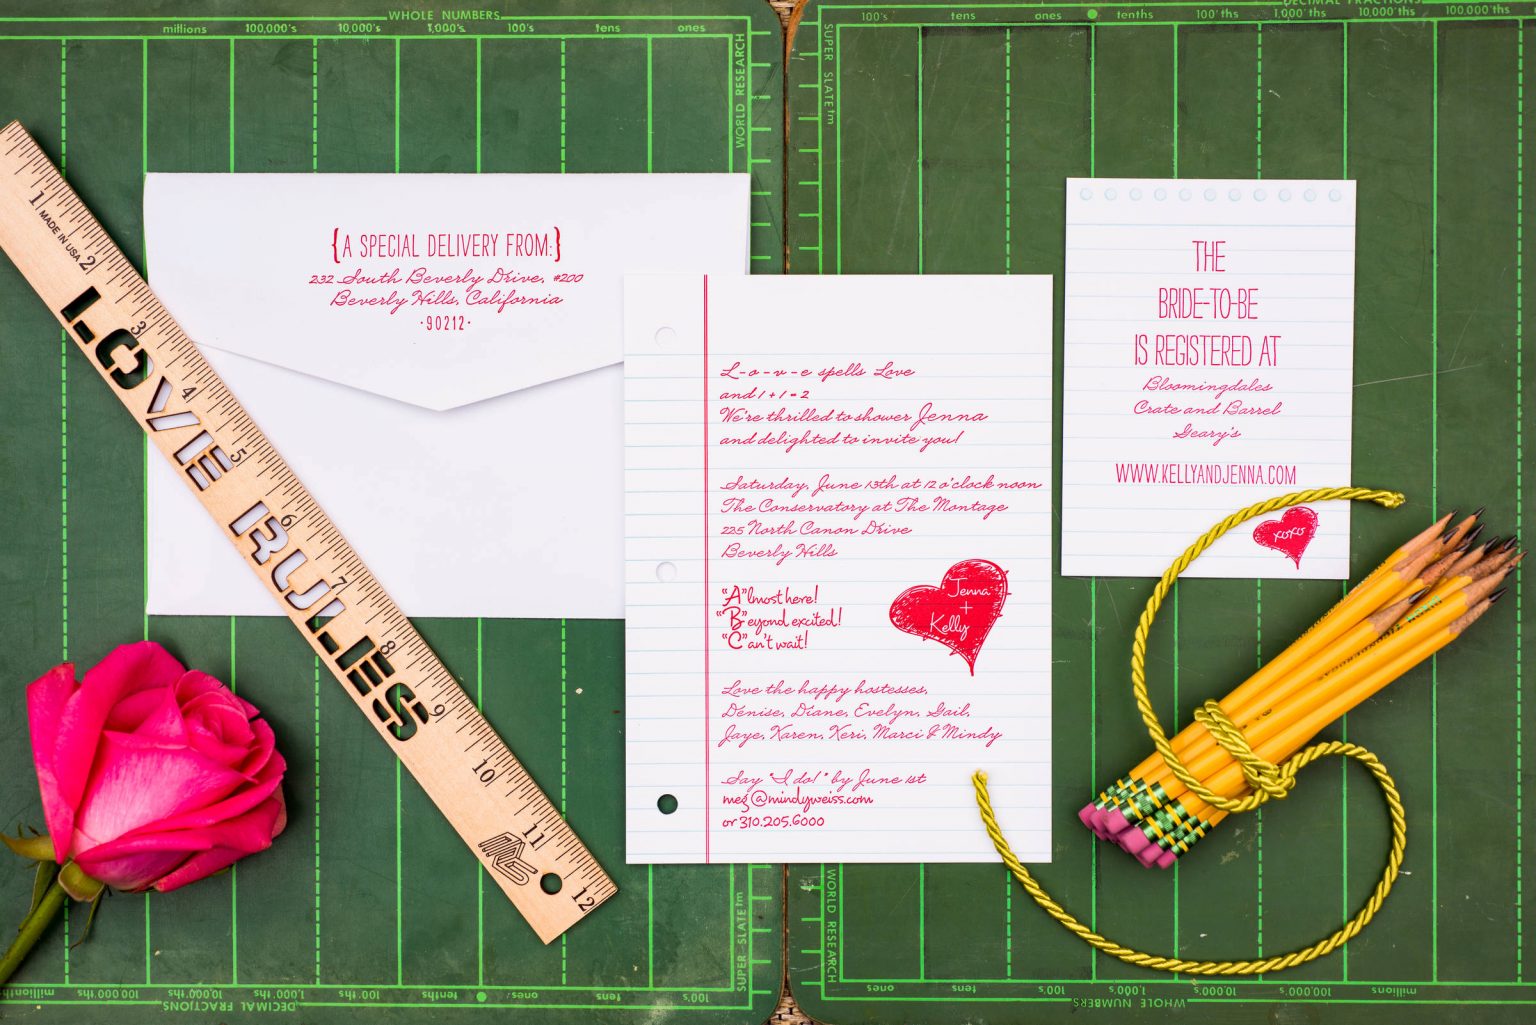 WHOLE NUMBERS
millions 100,000's 10,000's 1,000's 100's tens ones
WORLD RESEARCH
DECIMAL FRACTIONS
100's tens ones tenths 100'ths 1,000'ths 10,000'ths 100,000'ths
SUPER SLATE tm
1 2 3 4 5 6 7 8 9 10 11 12
MADE IN USA
LOVE RULES
{A SPECIAL DELIVERY FROM:}
232 South Beverly Drive, #200
Beverly Hills, California
·90212·
L-o-v-e spells Love
and 1 + 1 = 2
We're thrilled to shower Jenna
and delighted to invite you!
Saturday, June 13th at 12 o'clock noon
The Conservatory at The Montage
225 North Canon Drive
Beverly Hills
"A"lmost here!
"B"eyond excited!
"C"an't wait!
Jenna
+
Kelly
Love the happy hostesses,
Denise, Diane, Evelyn, Gail,
Jaye, Karen, Keri, Marci & Mindy
Say "I do!" by June 1st
meg@mindyweiss.com
or 310.205.6000
THE
BRIDE-TO-BE
IS REGISTERED AT
Bloomingdales
Crate and Barrel
Geary's
WWW.KELLYANDJENNA.COM
xoxo
SUPER SLATE tm
100's tens ones tenths 100'ths 1,000'ths 10,000'ths 100,000'ths millionths
DECIMAL FRACTIONS
WORLD RESEARCH
ones tens 100's 1,000's 10,000's 100,000's millions
WHOLE NUMBERS